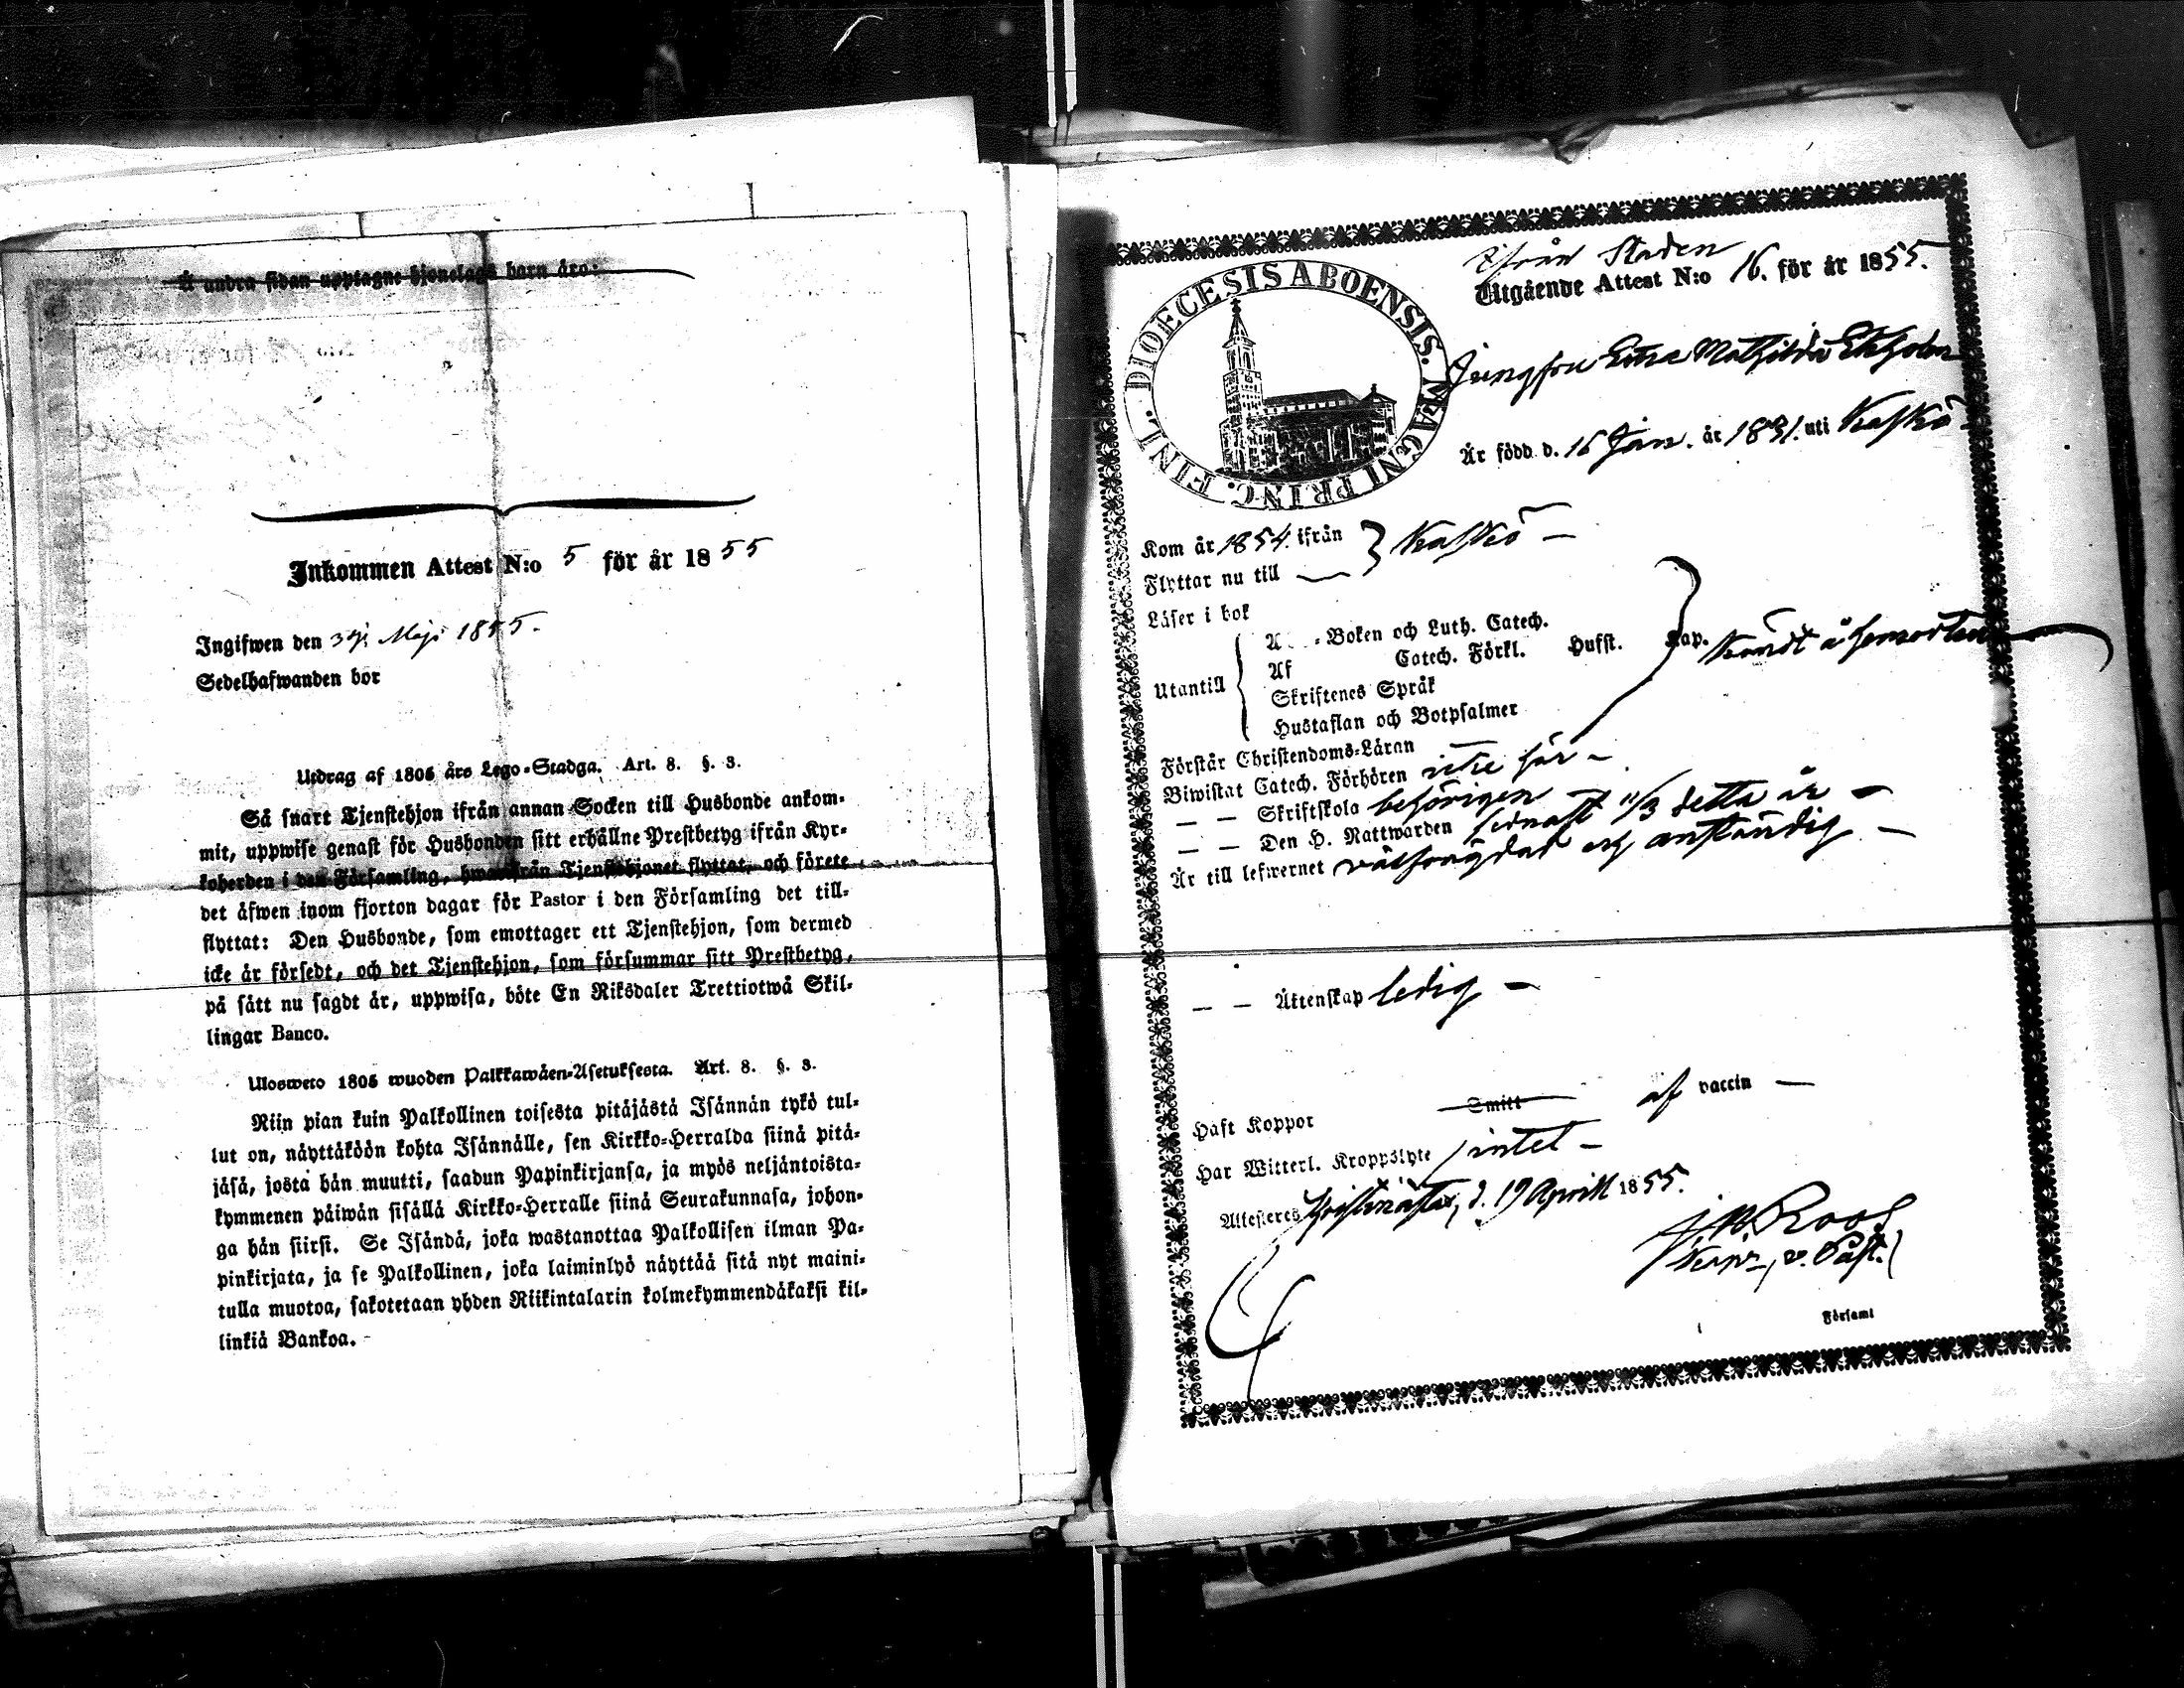 Å andra sidan upptagne hjonelags barn äro:
Inkommen Attest N:o 5 för år 1855
Ingifwen den 3dje Maji 1855.
Sedelhafwanden bor
Utdrag af 1805 års Lego-Stadga. Art. 8. §. 3.
Så snart Tjenstehjon ifrån annan Socken till Husbonde ankom-
mit, uppwise genast för Husbonden sitt erhållne Prestbetyg ifrån Kyr-
koherden i den Församling, hwarifrån Tjenstehjonet flyttat, och förete
det äfwen inom fjorton dagar för Pastor i den Församling det till-
flyttat: Den Husbonde, som emottager ett Tjenstehjon, som dermed
icke är försedt, och det Tjenstehjon, som försummar sitt Prestbetyg,
på sätt nu sagdt är, uppwisa, böte En Riksdaler Trettiotwå Skil-
lingar Banco.
Ulosweto 1805 wuoden Palkkawäen-Asetuksesta. Art. 8. §. 3.
Niin pian kuin Palkollinen toisesta pitäjästä Isännän tykö tul-
lut on, näyttäköön kohta Isännälle, sen Kirkko-Herralda siinä pitä-
jäsä, josta hän muutti, saadun Papinkirjansa, ja myös neljäntoista-
kymmenen päiwän sisällä Kirkko-Herralle siinä Seurakunnasa, johon-
ga hän siirsi. Se Isändä, joka wastanottaa Palkollisen ilman Pa-
pinkirjata, ja se Palkollinen, joka laiminlyö näyttää sitä nyt maini-
tulla muotoa, sakotetaan yhden Riikintalarin kolmekymmendäkaksi kil-
linkiä Bankoa.
DIOECESIS ABOENSIS. MAGNI PRINC. FINL.
Ifrån Staden
Utgående Attest N:o 16. för år 1855.
Jungfru Mathilda Ekholm
Är född d. 16 Jan. år 1831. uti Kaskö
Kom år 1854. ifrån } Kaskö
Flyttar nu till
Läser i bok
Utantill
A - Boken och Luth. Catech.
Af Catech. Förkl. Hufst. Kap. Kändt å hemorten
Skriftenes Språk
Hustaflan och Botpsalmer
Förstår Christendoms-Läran
Biwistat Catech. Förhören icke här
— — Skriftskola behörigen
— — Den H. Nattwarden sednast 11/3 detta år
Är till lefwernet välfrägdad och anständig
— — Äktenskap ledig
Haft Koppor Smitt af vaccin
Har Witterl. Kroppslyte intet
Attesteres Christinestad, d. 19 April 1855.
Roos
v. Past.
Församl